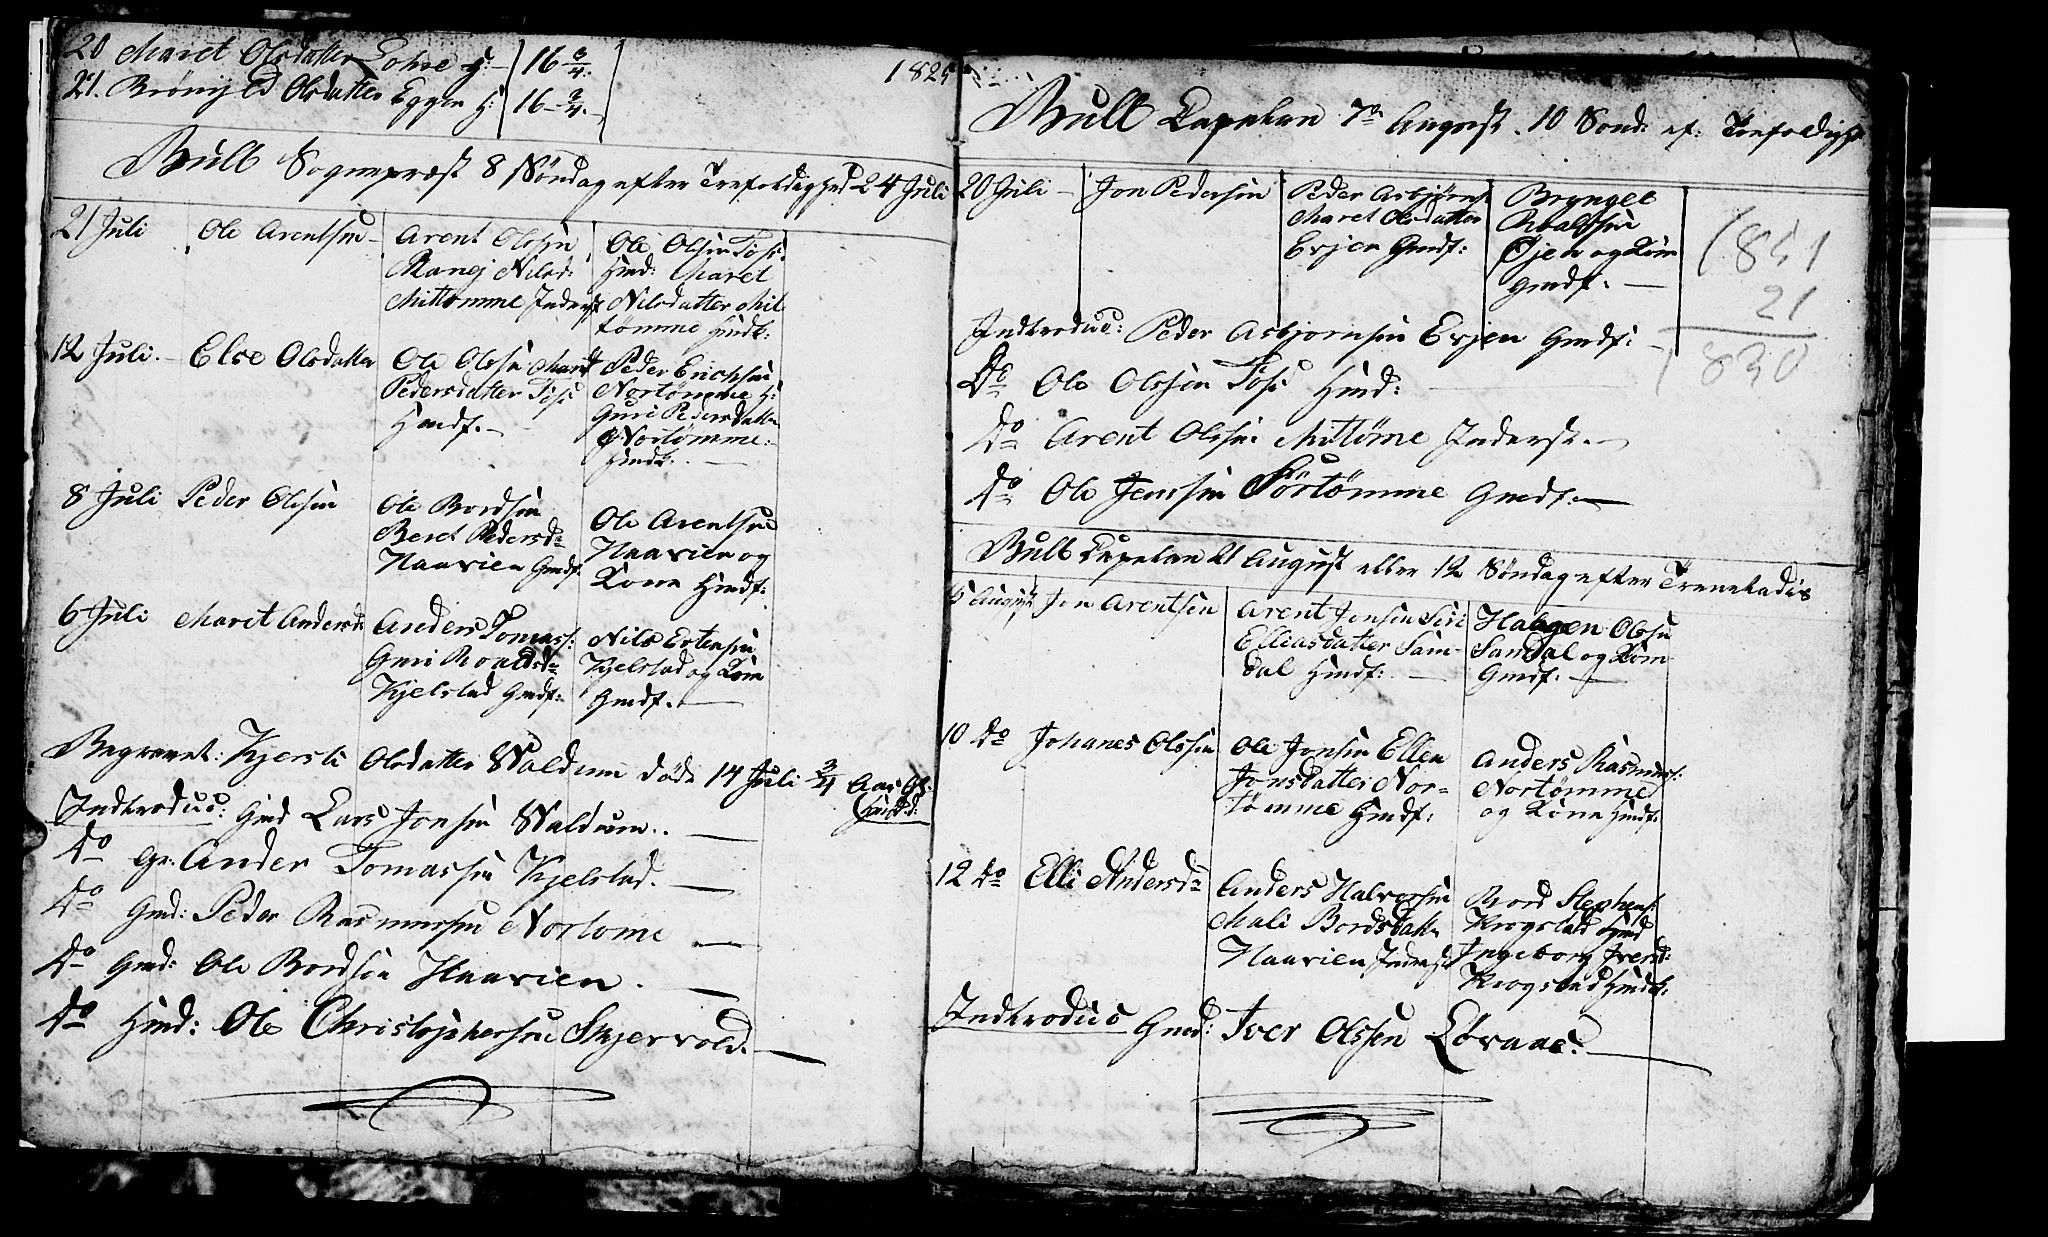 20 Maret Olsdatter Lohse H: 16 3/4.
21. Brønij ed Olsdatter Eggen H: 16 - 3/4.
Bull Sognepræst 8 Søndag efter Trefoldighed 24 Juli
21 Juli Ole Arentsen
Arent Olssen
Nilsd:
Mittømme Inderst
Ole Olssen Tøse
Hmd: Maret
Nilsdatter Mit
tømme gmdk:
12 Juli. Else Olsdatter
Ole Olssen Maret
Pedersdatter Tøse
Hmdf.
Peder Erichsen
Nortømme H:
Guri Pedersdatter
Nortømme:
Hmdk.
8 Juli Peder Olssen
Ole Bordsen
Beret Pedersd:
Haarien Gmdf.
Ole Arentsen
Haarien og
Kone Hmdf:
6 Juli Maret Andersd:
Anders Tomass:
Guri Roaldsd:
Kjelstad Gmdf:
Nils Estensen
Kjelstad og Kone
Gmdf.
Begravet: Kjersti Olsdatter Waldum død 14 Juli 3/4 Aar Gl:
Indtroduc: Gmd Lars Jonsen Waldum.
Do Gr: Ander Tomassen Kjelstad.
Do Gmd: Peder Rasmussen Nortome
Do Gmd: Ole Bordsen Haarien.
Do Hmd: Ole Christophersen Skjervold.
1825
Bull Capelan 7de August. 10 Sond: ef: Trefoldigh
20 Juli Jon Pedersen
Peder Asbjørns
Maret Olsdatter
Evjen Gmdf:
Bryngel
Roaldsen
Øjen og Kone
gmdf.
1851
21
1830
Indtroduc: Peder Asbjornsen Evjen Gmdf:
Do Ole Olssen Tøse Hmd:
Do Arent Olssen Mittøme Inderst.
Do Ole Jenssen Sørtømme Gmdf.
Bull Capelan 21 August eller 12 Søndag efter Trenetadis
5 August Jon Arentsen
Arent Jonsen Siri
Elliasdatter Sam-
dal Hmdf:
Haagen Olssen
Samdal og Kone
Gmdf:
10 Do Johanes Olssen
Ole Jonsen Ellen
Jonsdatter Nor-
tømme Hmdf:
Anders Rasmuss:
Nortømme
og Kone Hmdf:
12 Do Elli Andersd:
Anders Halvorsen
Mali Bordsdatter
Haarien Inderst
Bord Stephens:
Krogstad Gmd
Ingeborg Iversd:
Krogstad Hmdk:
Indtroduc Gmd: Iver Olssen Løvaas: